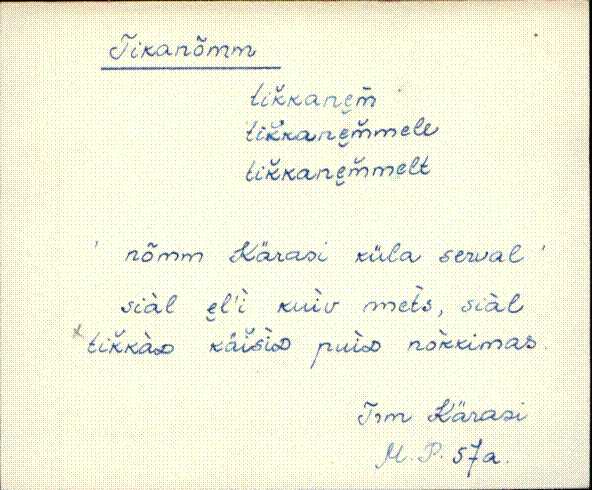 Tikanõmm
tik̆kanẹm̆
tik̆kanẹm̆mele
tik̆kanẹm̆melt
' nõmm Kärasi küla serval '
siàl ẹl'ì kuìv mets̀, siàl
x tik̆kàᴅ käis̆ìᴅ puìᴅ nòkkimas.
Trm Kärasi
M. P. 57a.